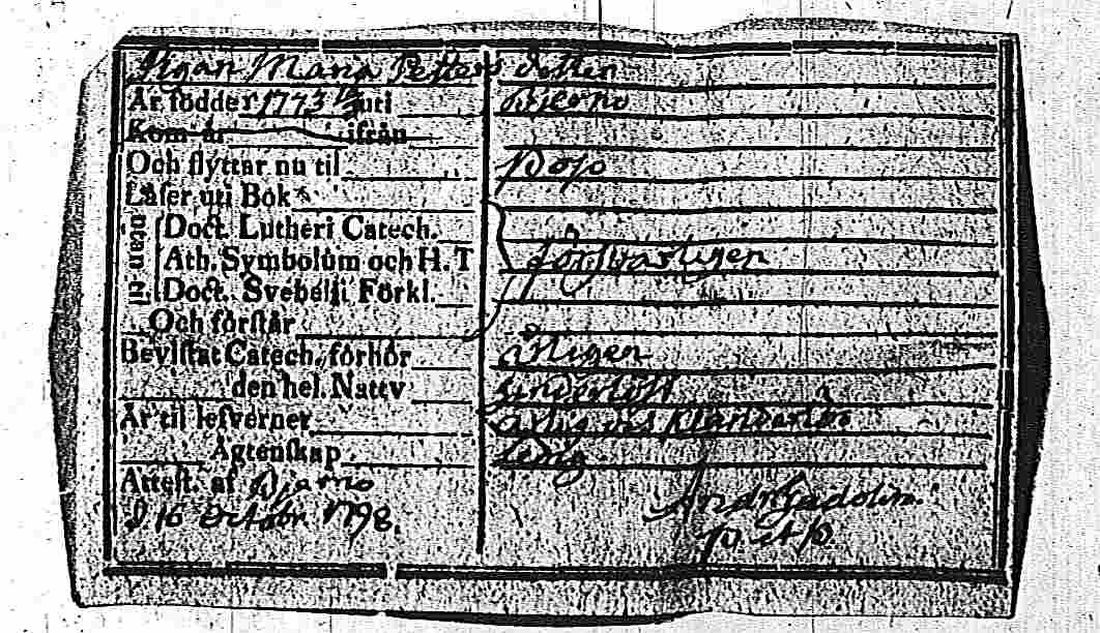 Pigan Maria Petters dotter
Är födder 1773 12/3 uti Bjerno
Kom år ifrån
Och flyttar nu til Pojo
Läser uti Bok
Utan
Doct. Lutheri Catech.
Ath. Symbolum och H. T försvarligen
Doct. Svebelii Förkl.
Och förstår
Bevistat Catech. förhör årligen
den hel. Nattv
Är til lefverne
Ägtenskap ledig
Attest. af Bjerno Andr Gadolin
d 16 octobr 1798. p. et p